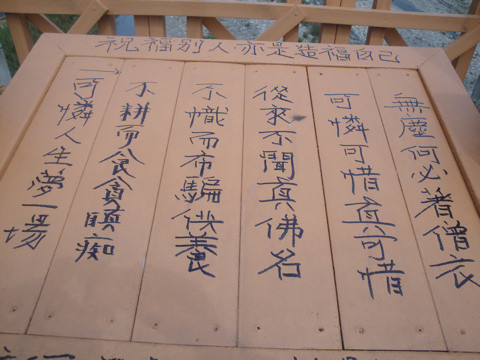 祝福別人亦是造福自己
無塵何必著僧衣
可憐可惜真可惜
從來不聞真佛名
不幟而布騙供養
不耕而食貪瞋痴
可憐人生夢一場